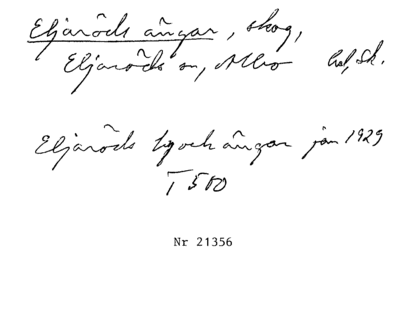 Eljaröds ängar, skog,
Eljaröds sn, Albo hd, Sk.
Eljaröds by och ängar jan 1929
T 500
Nr 21356